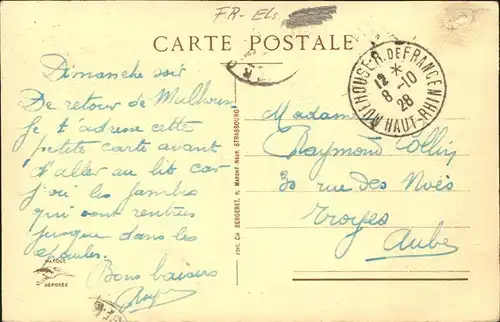 FR-Els.
CARTE POSTALE
MULHOUSE-R. DE FRANCE
12 *
8 -10
28
HAUT-RHIN
Dimanche soir
De retour de Mulhouse
je t'adresse cette
petite carte avant
d'aller au lit car
j'ai les jambes
qui sont rentrées
jusque dans les
épaules.
Bons baisers
MARQUE
DÉPOSÉE
CH BERGERET, 8, MARCHÉ-NEUF, STRASBOURG
Madame
Raymond Collin
30 rue des Noës
Troyes
Aube